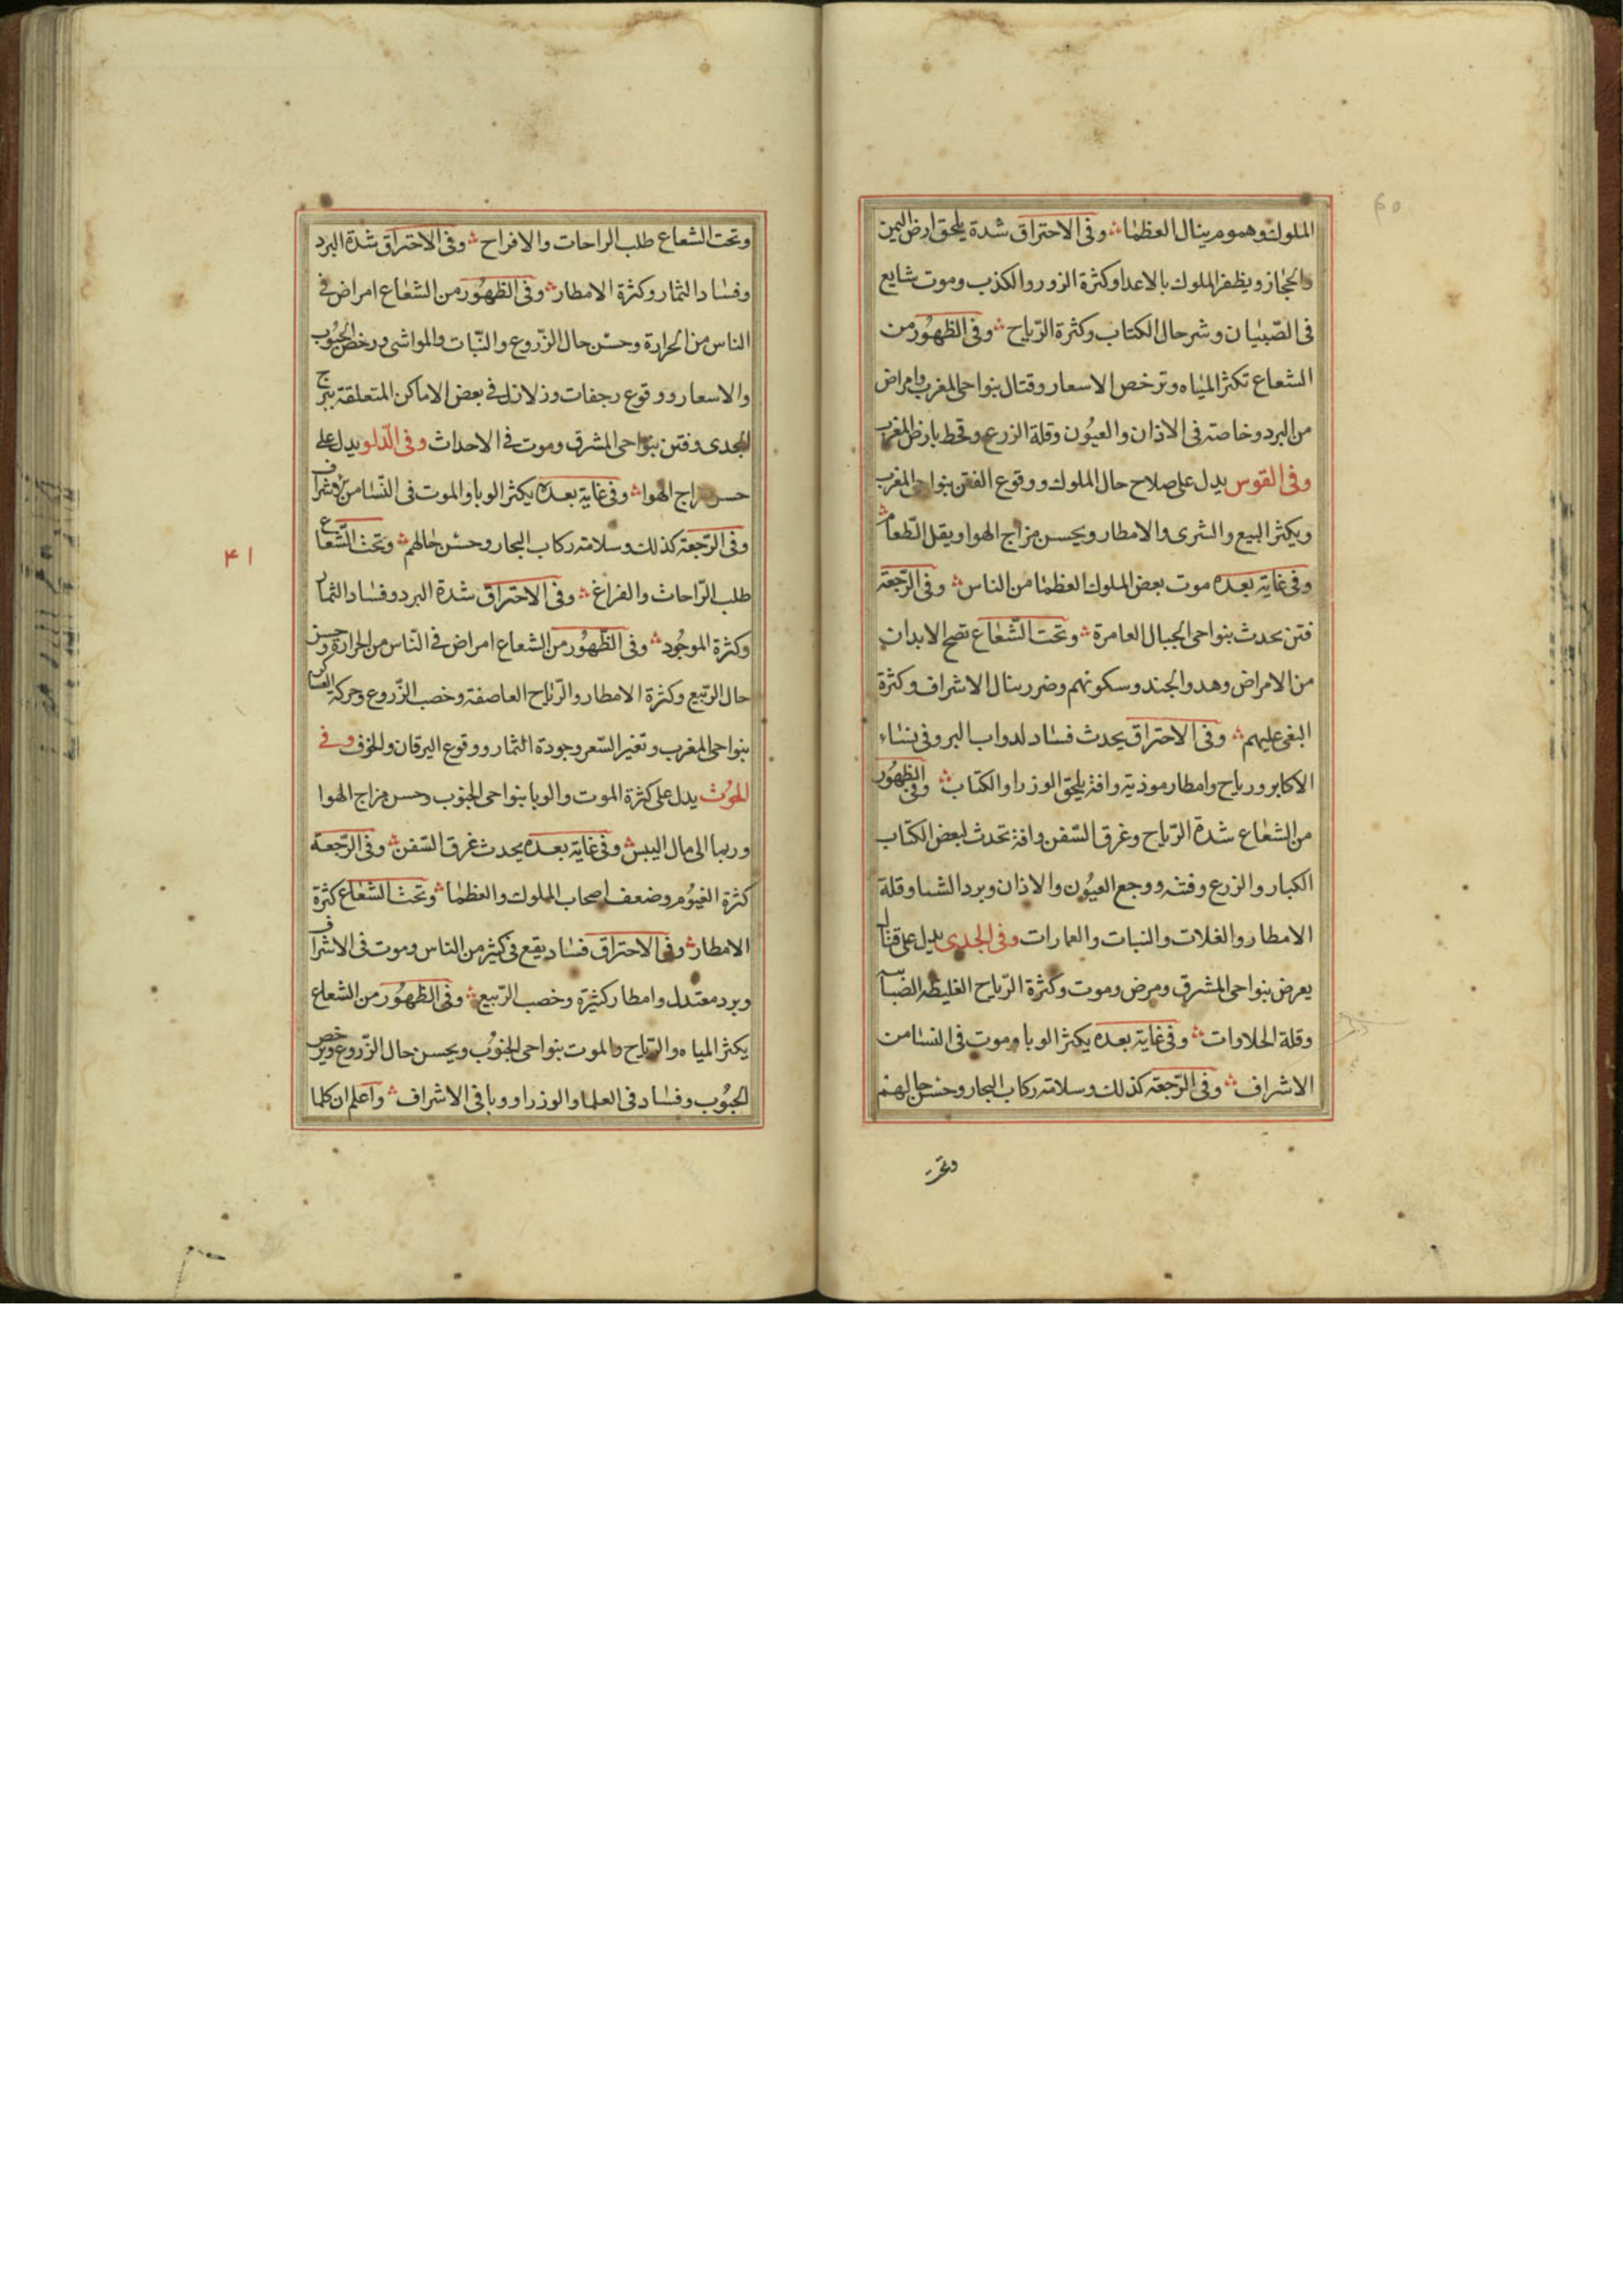 الملوك وهموم ينال العظما ؞ وفى الاحتراق شدة يلحق ارض اليمن
والحجاز ويظفر الملوك بالاعدا وكثرة الزور والكذب وموت شايع
فى الصّبيان وشر حال الكتاب وكثرة الرّياح ؞ وفى الظهور من
الشعاع تكثر المياه وترخص الاسعار وقتال بنواحى المغرب وامراض
من البرد وخاصته فى الاذان والعيُون وقلة الزرع وقحط بارض المغرب
وفى القوس يدل على صلاح حال الملوك ووقوع الفتن بنواحى المغرب
ويكثر البيع والشرى والامطار ويحسن مزاج الهوا ويقل الطعام ؞
وفى غاية بعده موت بعض الملوك العظما من الناس ؞ وفى الرّجعة
فتن تحدث بنواحى الجبال العامرة ؞ وتحت الشّعاع تصح الابدان
من الامراض وهدو الجند وسكونهم وضرر ينال الاشراف وكثرة
البغى عليهم ؞ وفى الاحتراق يحدث فساد لدواب البر وفى نساء
الاكابر ورياح وامطار موذية وافة يلحق الوزرا والكتاب ؞ وفى الظهُور
من الشعاع شدة الرّياح وغرق السّفن وافة تحدث لبعض الكتاب
الكبار والزرع وفتنه ووجع العيُون والاذان وبرد الشتا وقلة
الامطار والغلات والنبات والعمارات وفى الجدى يدل على قتال
يعرض بنواحى المشرق ومرض وموت وكثرة الرّياح الغليظه
وقلة الحلاوات ؞ وفى غاية بعده يكثر الوبا وموت فى النسا من
الاشراف ؞ وفى الرّجعة كذلك وسلامة ركاب البحار وحسن حالهم
وتحت
وتحت الشعاع طلب الراحات والافراح ؞ وفى الاحتراق شدة البرد
وفساد الثمار وكثرة الامطار ؞ وفى الظهُور من الشعاع امراض فى
الناس من الحرارة وحسن حال الزّروع والنّبات والمواشى ورخص الحبُوب
والاسعار ووقوع رجفات وزلازل فى بعض الاماكن المتعلقة ببرج
الجدى وفتن بنواحى المشرق وموت فى الاحداث وفى الدّلو يدل على
حسن مزاج الهوا ؞ وفى غاية بعده يكثر الوبا والموت فى النّسا من الاشراف
وفى الرّجعة كذلك وسلامة ركاب البحار وحسن حالهم ؞ وتحت الشّعاع
طلب الرّاحات والفراغ ؞ وفى الاحتراق شدة البرد وفساد الثمار
وكثرة الموجُود ؞ وفى الظّهُور من الشعاع امراض فى النّاس من الحرارة وحسن
حال الرّبيع وكثرة الامطار والرّياح العاصفة وخصب الزّروع وحركة العساكر
بنواحى المغرب وتغير السّعر وجودة الثمار ووقوع اليرقان والخوف وفى
الحُوت يدل على كثرة الموت والوبا بنواحى الجنوب وحسن مزاج الهوا
وربما الى مال اليبس ؞ وفى غاية بعده يحدث غرق السّفن ؞ وفى الرّجعة
كثرة الغيُوم وضعف اصحاب الملوك والعظما ؞ وتحت الشعاع كثرة
الامطار ؞ وفى الاحتراق فساد يقع فى كثير من الناس وموت فى الاشراف
وبرد معتدل وامطار كثيرة وخصب الرّبيع ؞ وفى الظهُور من الشعاع
يكثر المياه والرّياح والموت بنواحى الجنوُب ويحسن حال الزّروع ويرخص
الحبُوب وفساد فى العلما والوزرا ووبا فى الاشراف ؞ واعلم ان كلما
٤١